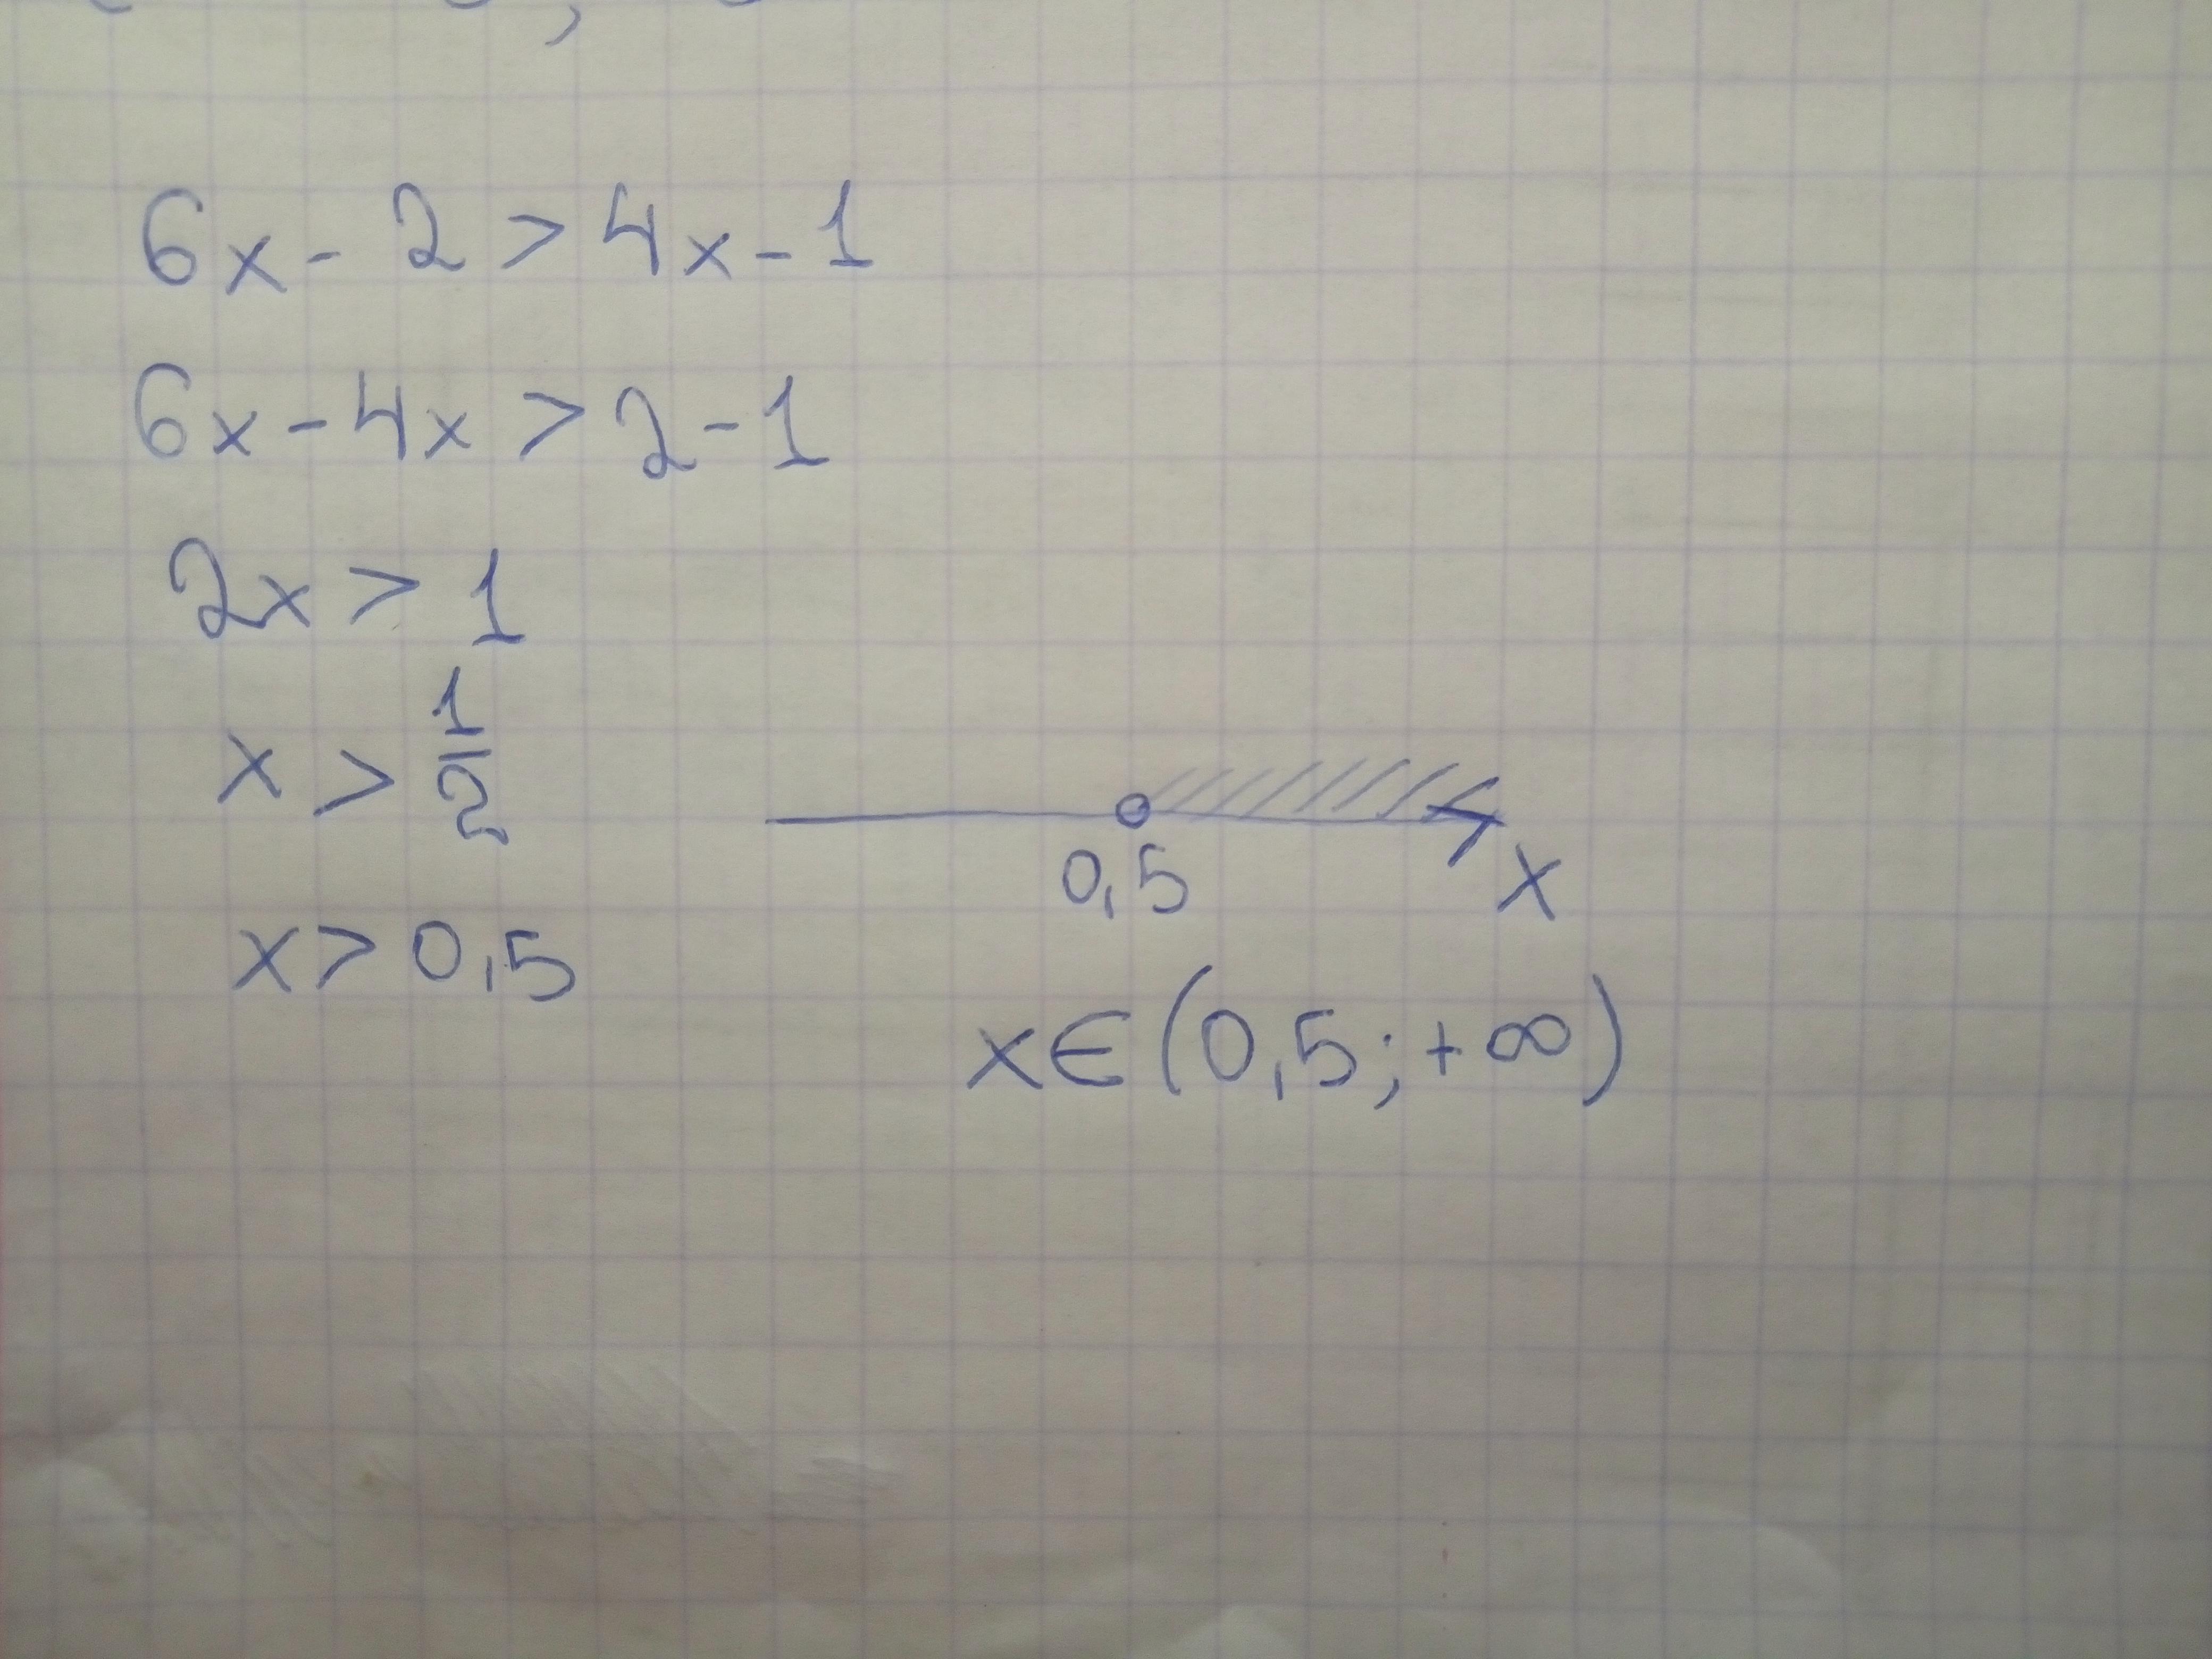 6x - 2 > 4x - 1
6x - 4x > 2 - 1
2x > 1
x > 1/2
x > 0,5
0,5
x
x∈(0,5;+∞)